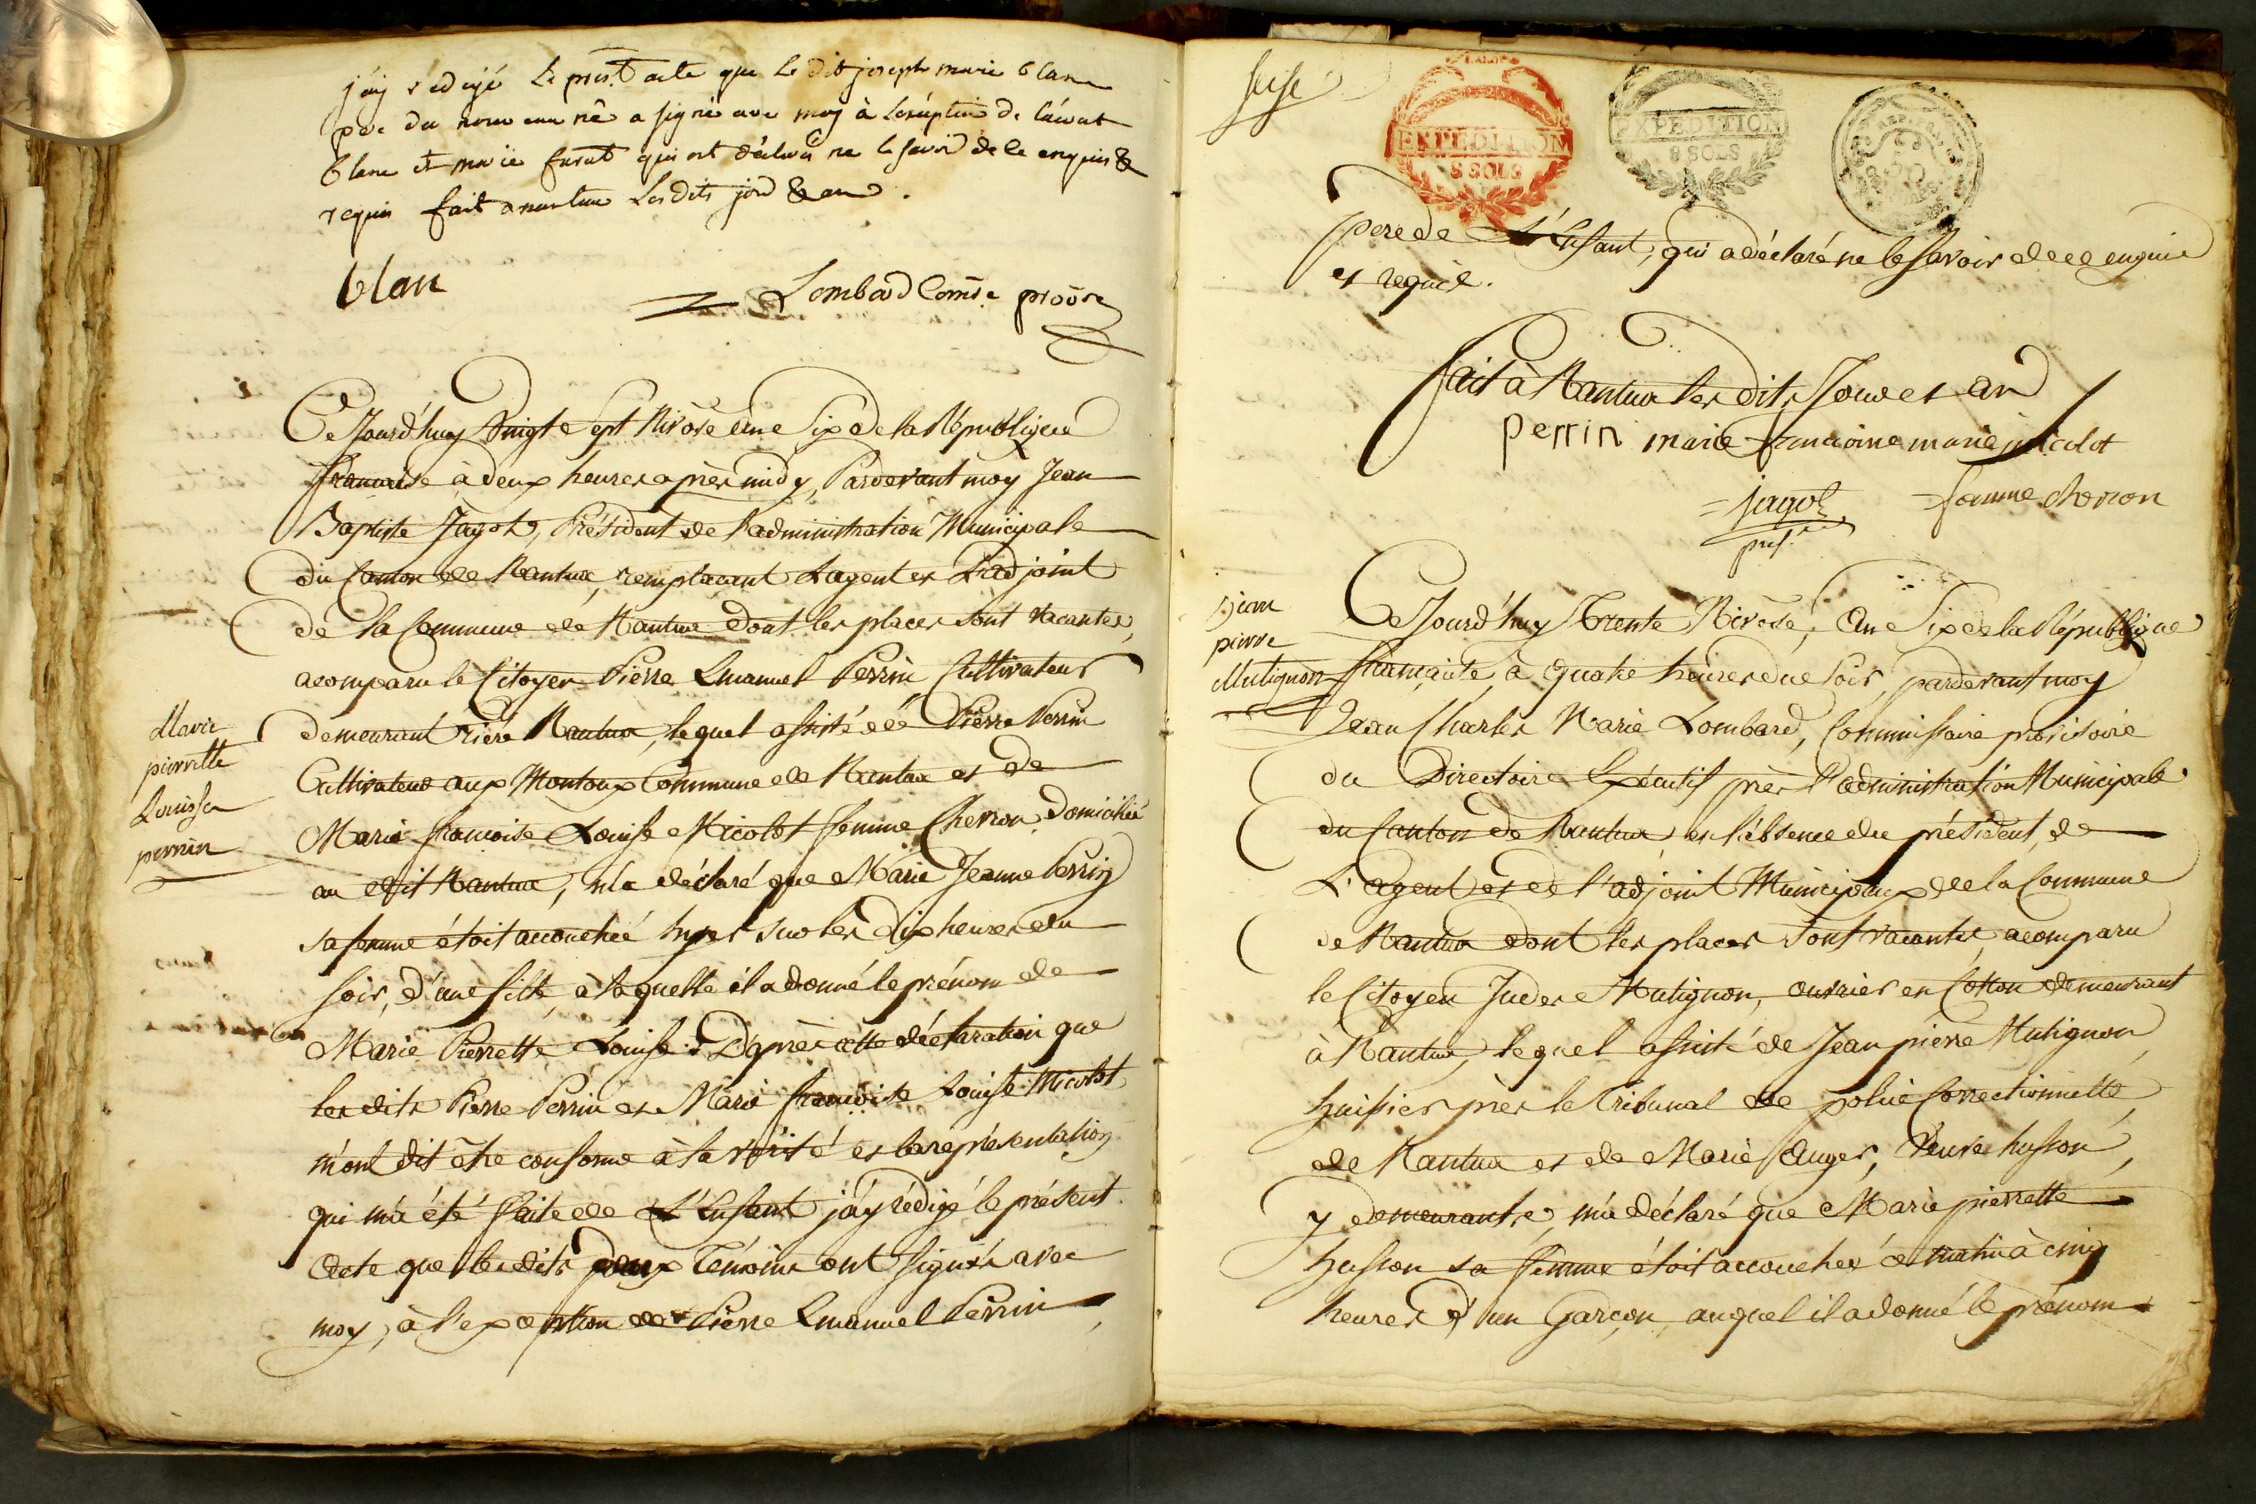 j'ay rédigé le prést acte que le dit joseph marie blanc
pere du nouveau né a signé avec moy à
blanc et marie qui ont déclaré ne le savoir de ce enquis &
requis fait a nantua Les dits jour & an.
blan
Lombard Comre provre
Ce Jourd'huy Vingt Sept Nivôse an Six de la République
francaise à deux heures après midy, Pardevant moy Jean
Baptiste Jagot, Président de l'administration Municipale
du Canton de Nantua, remplacant L'agent et L'adjoint
de la Commune de Nantua dont les places sont vacantes,
a comparu le Citoyen Pierre Emanuel Perrin Cultivateur
demeurant rière Nantua, lequel assisté de Pierre Perrin
Cultivateur aux Montoux Commune de Nantua et de
Marie francoise Louise Nicolot femme Cherron, domiciliée
au dit Nantua, m'a déclaré que Marie Jeanne Perrin
sa femme étoit accouchée hyer sur les dix heures du
soir, d'une fille, à laquelle il a donné le prénom de
Marie Pierrette Louise. D'après cette déclaration que
les dits Pierre Perrin et Marie francoise Louise Nicolot
m'ont dit être conforme à la vérité et la représentation
qui m'a été faite de L'Enfant j'ay rédigé le présent
Acte que les dits deux Témoins ont signé avec
moy, à l'exception de Pierre Emanuel Perrin,
Marie
pierrette
Louise
perrin
seise
EXPEDITION
8 SOLS
EXPEDITION
8 SOLS
REP. FRA
50
pere de L'Enfant, qui a déclaré ne le savoir de ce enquis
et requis.
fait à Nantua les dits Jour et an
perrin marie francoise marie nicolot
jagot femme cherron
pres.
Jean
pierre
Mutignon
Ce Jourd'huy Trente Nivôse, An Six de la République
francaise, à quatre heures du soir, pardevant moy
Jean Charles Marie Lombard, Commissaire provisoire
du Directoire Exécutif près l'administration Municipale
du Canton de Nantua en l'absence du président, de
L'agent et de l'adjoint Municipaux de la Commune
de Nantua dont les places sont vacantes, a comparu
le Citoyen Jude Mutignon, ouvrier en Cotton demeurant
à Nantua, lequel assisté de Jean pierre Mutignon,
huissier près le Tribunal de police Correctionnelle,
de Nantua et de Marie Auger, Veuve husson,
y demeurante, m'a déclaré que Marie pierrette
husson sa femme étoit accouchée ce matin à cinq
heures d'un Garçon, auquel il a donné le prénom